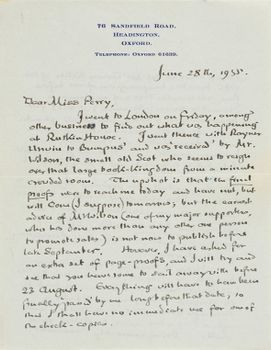 76 SANDFIELD ROAD,
HEADINGTON,
OXFORD.
TELEPHONE: OXFORD 61639.
June 28th, 1955.
Dear Miss Perry,
I went to London on Friday, among
other business to find out what was happening
at Ruskin House. I went there with Rayner
Unwin to Bumpus' and was 'received' by Mr.
Wilson, the small old Scot who seems to reign
over that large book-kingdom from a minute
crowded room. The upshot is that the final
proofs were to reach me today and have not, but
will come (I suppose) tomorrow; but the earnest
advice of Mr Wilson (one of my major supporters,
who has done more than any other one person
to promote sales) is not now to publish before
late September. However, I have asked for
an extra set of page-proofs, and I will try and
see that you have some to sail away with before
23 August. Everything will have to have been
finally passed by me long before that date, so
that I shall have no immediate use for one of
the check-copies.